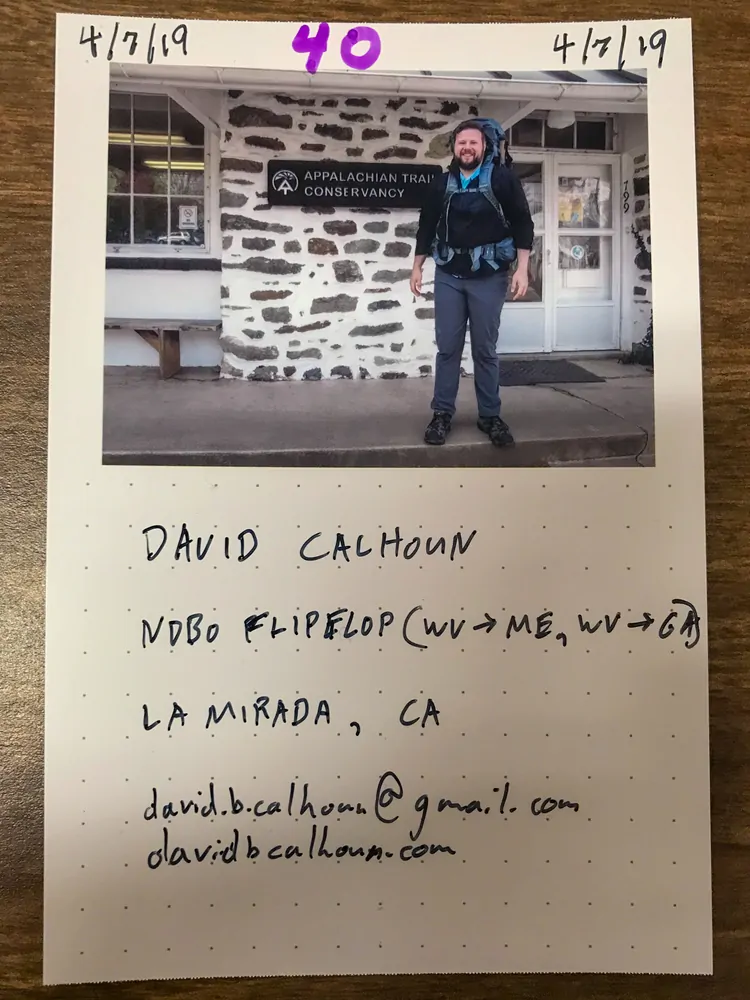 4/7/19 40 4/7/19
APPALACHIAN TRAIL
CONSERVANCY
799
DAVID CALHOUN
NOBO FLIPFLOP (WV → ME, WV → GA)
LA MIRADA, CA
david.b.calhoun@gmail.com
davidbcalhoun.com